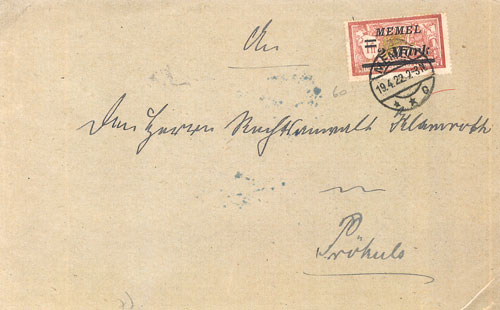 An
MEMEL
2 Mark
MEMEL
19.4.22.2-3N
* * c
60
Den Herrn Rechtsanwalt Klamroth
in
Prökuls